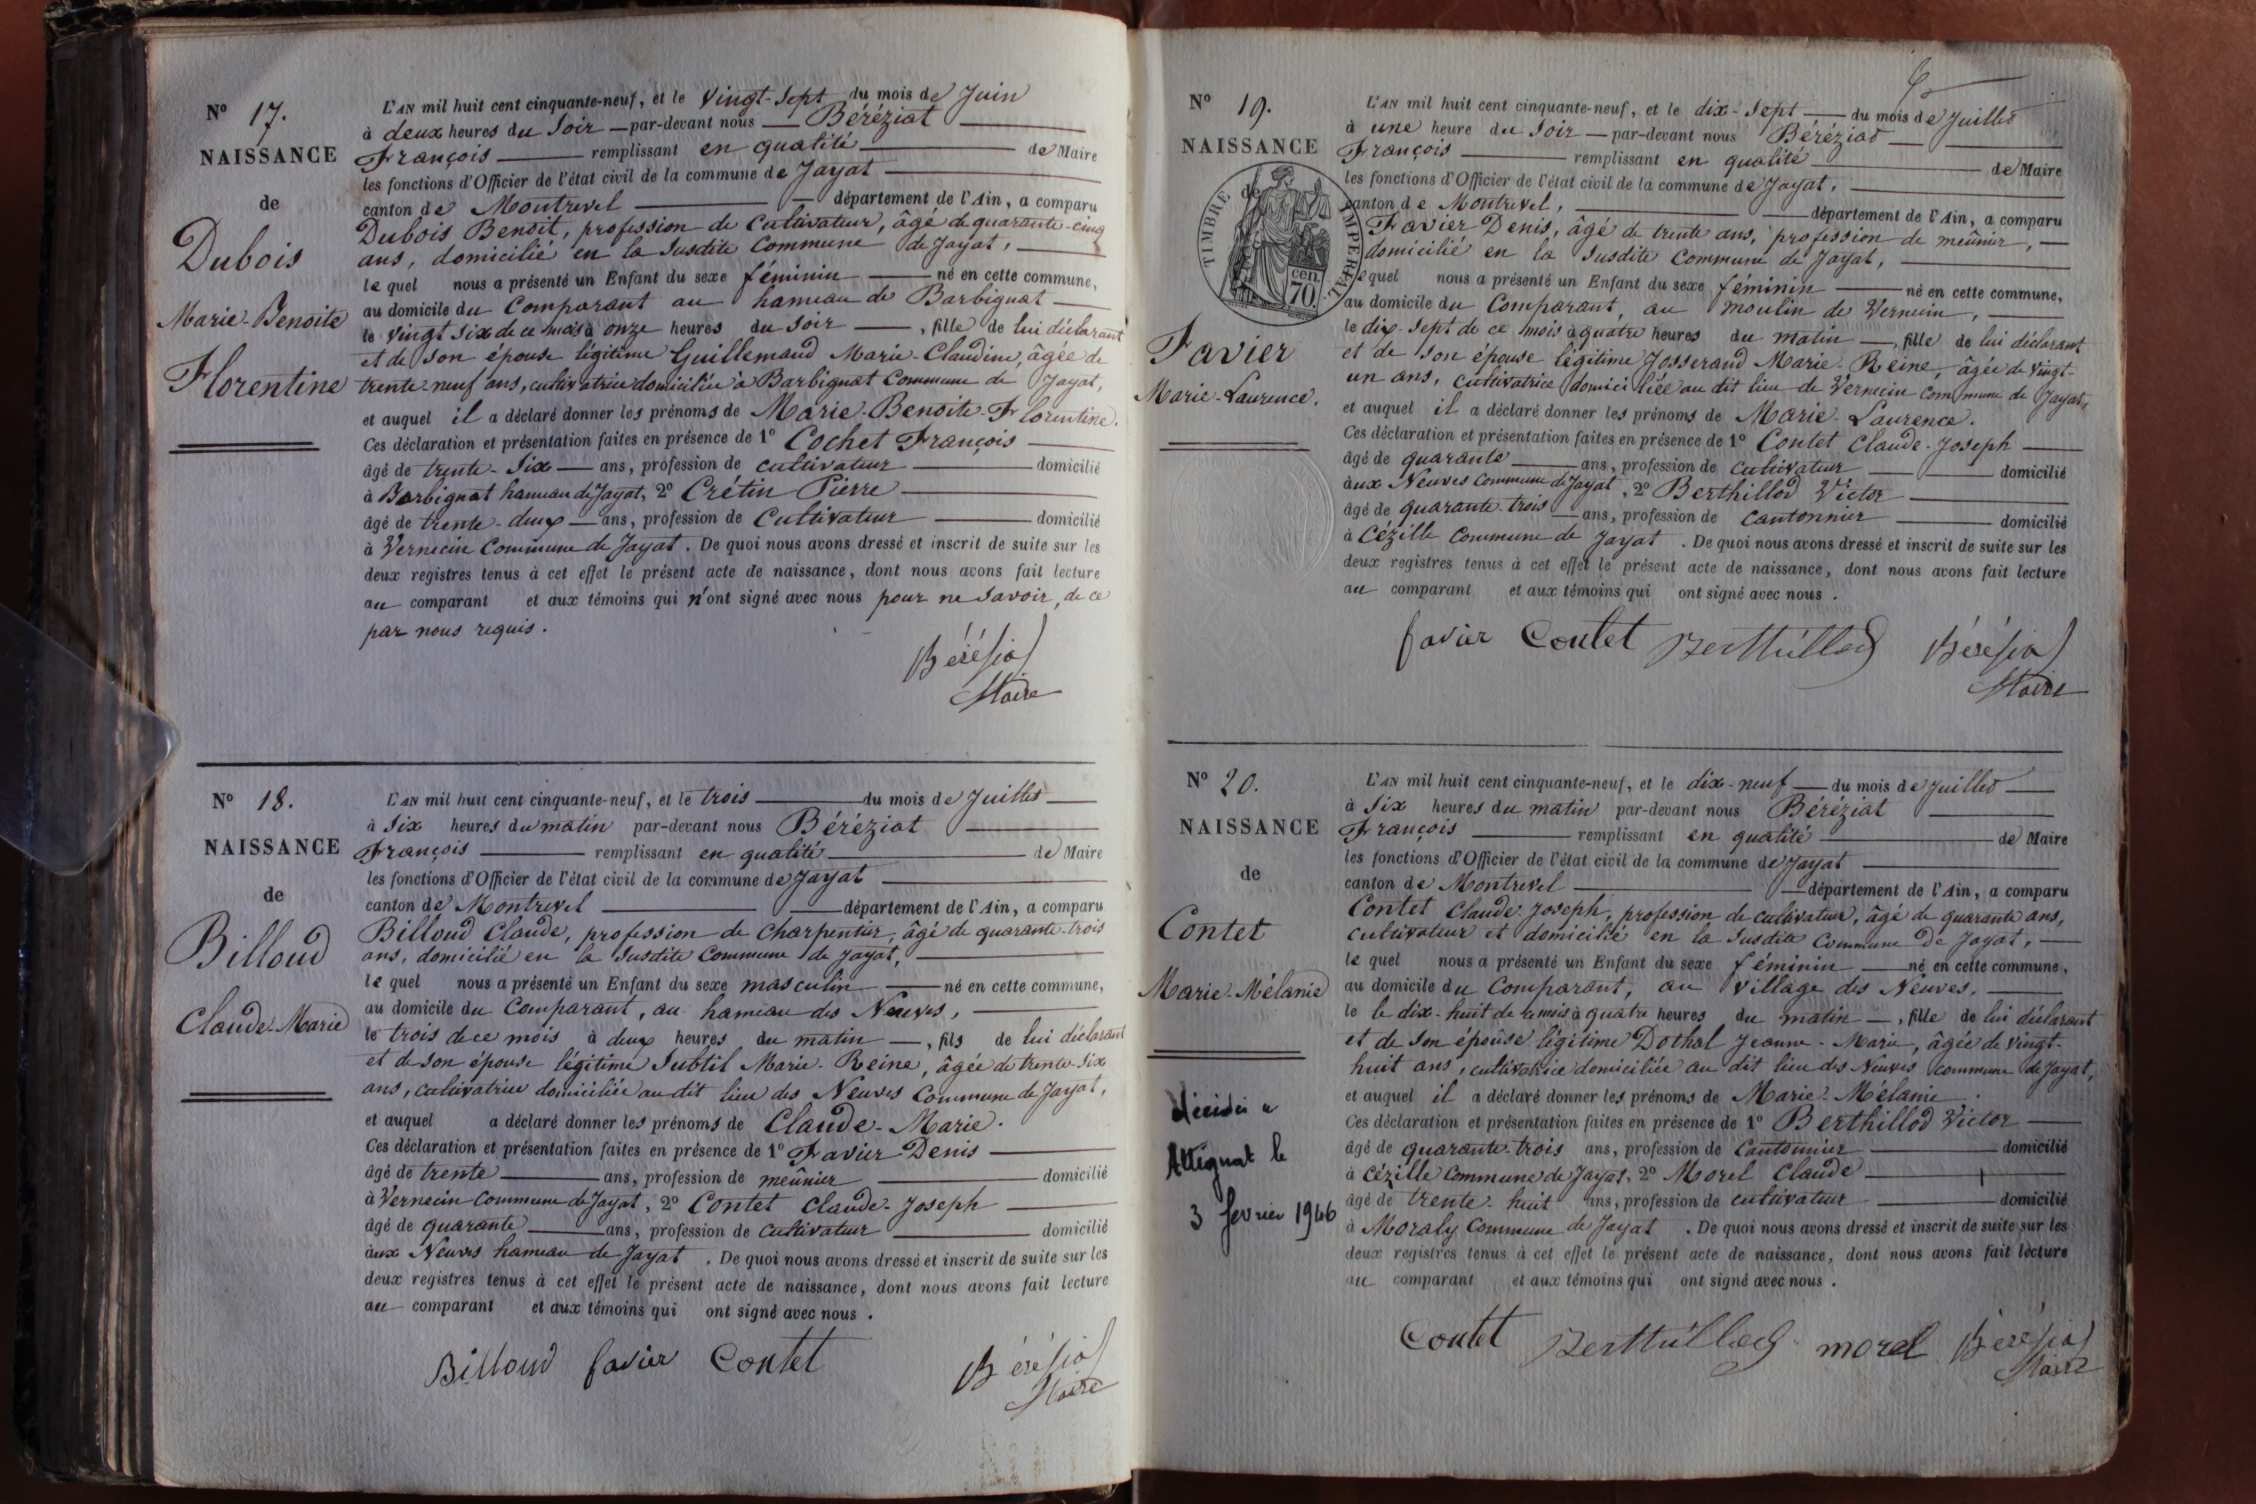 N° 17.
NAISSANCE
de
Dubois
Marie-Benoite
Florentine
L'AN mil huit cent cinquante-neuf, et le vingt-sept du mois de Juin
à deux heures du Soir par-devant nous Béréziat
François remplissant en qualité de Maire
les fonctions d'Officier de l'état civil de la commune de Jayat
canton de Montrevel département de l'Ain, a comparu
Dubois Benoit, profession de Cultivateur, âgé de quarante-cinq
ans, domicilié en la Susdite Commune de Jayat,
le quel nous a présenté un Enfant du sexe féminin né en cette commune,
au domicile du Comparant au hameau de Barbignat
le vingt six de ce mois à onze heures du soir, fille de lui déclarant
et de son épouse légitime Guillemaud Marie-Claudine, âgée de
trente-neuf ans, cultivatrice domiciliée à Barbignat Commune de Jayat,
et auquel il a déclaré donner les prénoms de Marie-Benoite-Florentine.
Ces déclaration et présentation faites en présence de 1° Cochet François
âgé de trente-six ans, profession de cultivateur domicilié
à Barbignat hameau de Jayat, 2° Crétin Pierre
âgé de trente-deux ans, profession de Cultivateur domicilié
à Vernecin Commune de Jayat. De quoi nous avons dressé et inscrit de suite sur les
deux registres tenus à cet effet le présent acte de naissance, dont nous avons fait lecture
au comparant et aux témoins qui n'ont signé avec nous pour ne savoir, de ce
par nous requis.
Bérésiat
Maire
N° 18.
NAISSANCE
de
Billoud
Claude-Marie
L'AN mil huit cent cinquante-neuf, et le trois du mois de Juillet
à Six heures du matin par-devant nous Béréziat
François remplissant en qualité de Maire
les fonctions d'Officier de l'état civil de la commune de Jayat
canton de Montrevel département de l'Ain, a comparu
Billoud Claude, profession de Charpentier, âgé de quarante-trois
ans, domicilié en la Susdite Commune de Jayat,
le quel nous a présenté un Enfant du sexe masculin né en cette commune,
au domicile du Comparant, au hameau des Neuves,
le trois de ce mois à deux heures du matin, fils de lui déclarant
et de son épouse légitime Subtil Marie-Reine, âgée de trente-six
ans, cultivatrice domiciliée au dit lieu des Neuves Commune de Jayat,
et auquel a déclaré donner les prénoms de Claude-Marie.
Ces déclaration et présentation faites en présence de 1° Favier Denis
âgé de trente ans, profession de meûnier domicilié
à Vernecin Commune de Jayat, 2° Contet Claude-Joseph
âgé de quarante ans, profession de Cultivateur domicilié
àux Neuves hameau de Jayat. De quoi nous avons dressé et inscrit de suite sur les
deux registres tenus à cet effet le présent acte de naissance, dont nous avons fait lecture
au comparant et aux témoins qui ont signé avec nous.
Billoud favier Contet Bérésiat
Maire
N° 19.
NAISSANCE
de
TIMBRE IMPERIAL
70 cen.
Favier
Marie-Laurence.
L'AN mil huit cent cinquante-neuf, et le dix-sept du mois de Juillet
à une heure du Soir par-devant nous Béréziat
François remplissant en qualité de Maire
les fonctions d'Officier de l'état civil de la commune de Jayat,
canton de Montrevel, département de l'Ain, a comparu
Favier Denis, âgé de trente ans, profession de meûnier,
domicilié en la Susdite Commune de Jayat,
lequel nous a présenté un Enfant du sexe féminin né en cette commune,
au domicile du Comparant, au moulin de Vernecin,
le dix-sept de ce mois à quatre heures du matin, fille de lui déclarant
et de son épouse légitime Josserand Marie-Reine, âgée de vingt-
un ans, cultivatrice domiciliée au dit lieu de Vernecin Commune de Jayat,
et auquel il a déclaré donner les prénoms de Marie-Laurence.
Ces déclaration et présentation faites en présence de 1° Contet Claude-Joseph
âgé de quarante ans, profession de cultivateur domicilié
àux Neuves Commune de Jayat, 2° Berthillod Victor
âgé de quarante-trois ans, profession de cantonnier domicilié
à Cézille Commune de Jayat. De quoi nous avons dressé et inscrit de suite sur les
deux registres tenus à cet effet le présent acte de naissance, dont nous avons fait lecture
au comparant et aux témoins qui ont signé avec nous.
favier Contet Berthillod Bérésiat
Maire
N° 20.
NAISSANCE
de
Contet
Marie-Mélanie
décédée a
Attignat le
3 fevrier 1946
L'AN mil huit cent cinquante-neuf, et le dix-neuf du mois de Juillet
à Six heures du matin par-devant nous Béréziat
François remplissant en qualité de Maire
les fonctions d'Officier de l'état civil de la commune de Jayat
canton de Montrevel département de l'Ain, a comparu
Contet Claude-Joseph, profession de cultivateur, âgé de quarante ans,
cultivateur et domicilié en la Susdite Commune de Jayat,
le quel nous a présenté un Enfant du sexe féminin né en cette commune,
au domicile du Comparant, au village des Neuves.
le le dix-huit de ce mois à quatre heures du matin, fille de lui déclarant
et de son épouse légitime Dothal Jeanne-Marie, âgée de vingt-
huit ans, cultivatrice domiciliée au dit lieu des Neuves commune de Jayat,
et auquel il a déclaré donner les prénoms de Marie-Mélanie.
Ces déclaration et présentation faites en présence de 1° Berthillod Victor
âgé de quarante-trois ans, profession de Cantonnier domicilié
à Cézille Commune de Jayat, 2° Morel Claude
âgé de trente-huit ans, profession de cultivateur domicilié
à Moraly Commune de Jayat. De quoi nous avons dressé et inscrit de suite sur les
deux registres tenus à cet effet le présent acte de naissance, dont nous avons fait lecture
au comparant et aux témoins qui ont signé avec nous.
Contet Berthillod morel Bérésiat
Maire